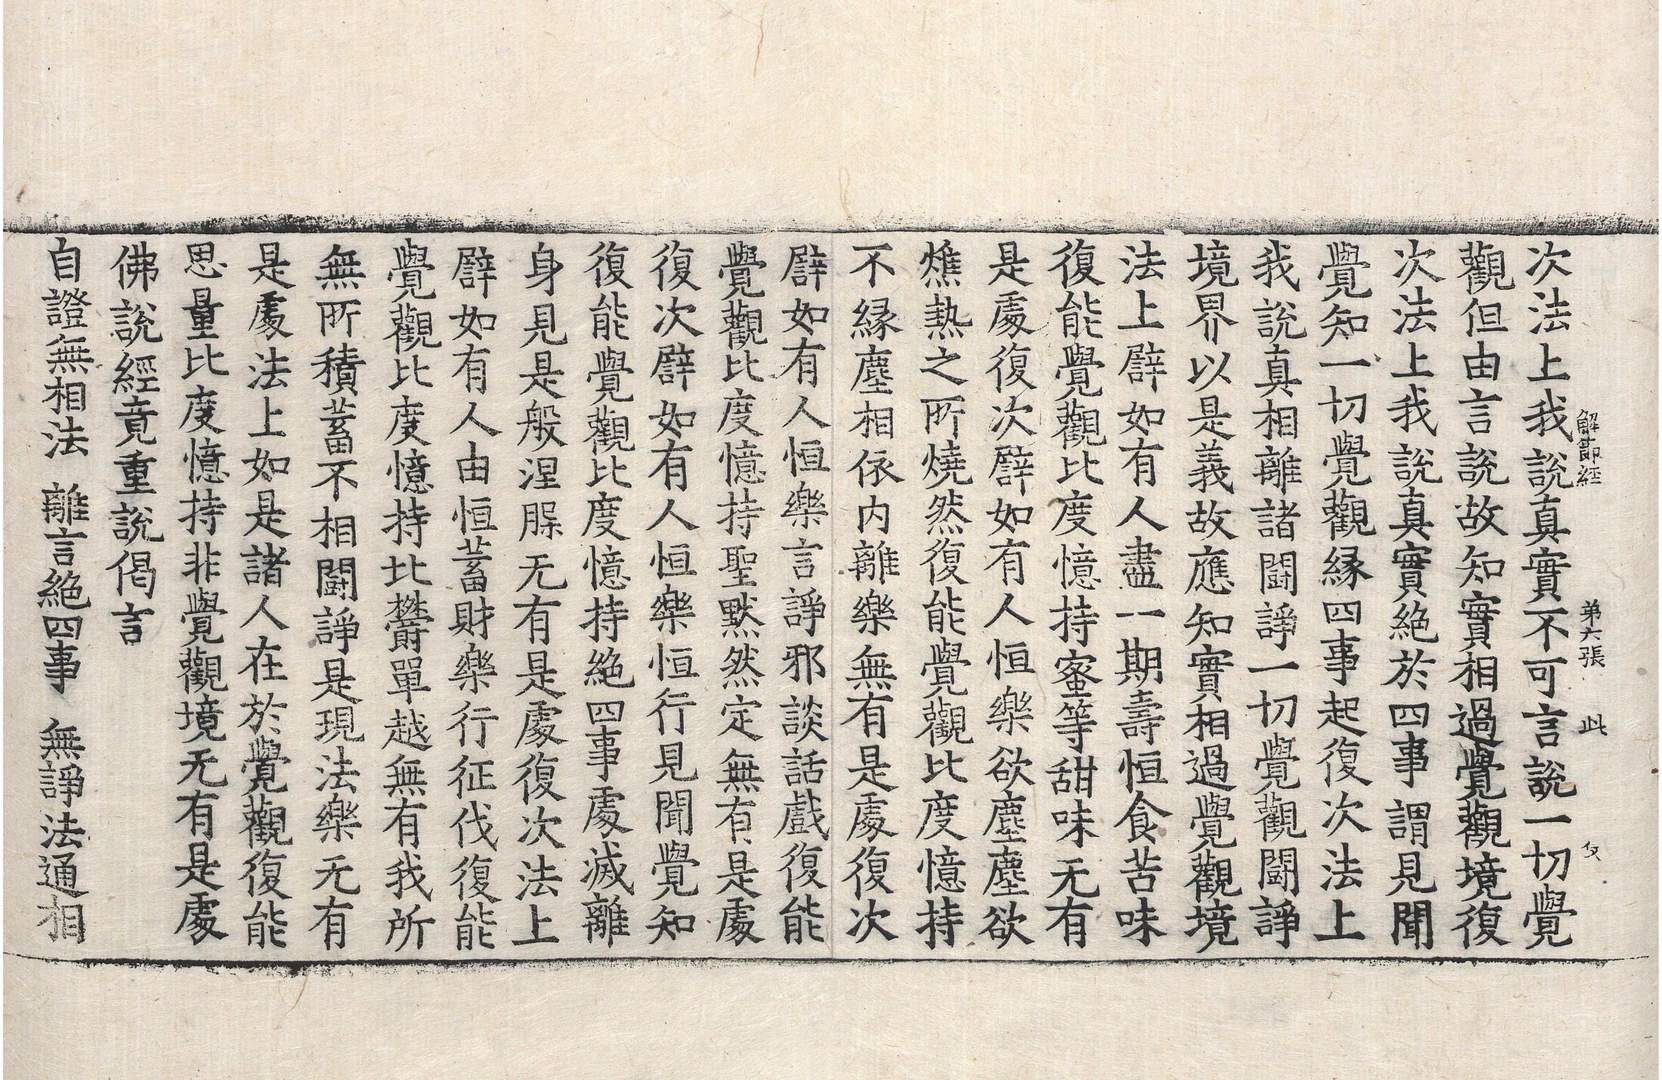 解節經 第六張 此
次法上我說真實不可言說一切覺
觀但由言說故知實相過覺觀境復
次法上我說真實絕於四事謂見聞
覺知一切覺觀緣四事起復次法上
我說真相離諸鬪諍一切覺觀鬪諍
境界以是義故應知實相過覺觀境
法上譬如有人盡一期壽恒食苦味
復能覺觀比度憶持蜜等甜味无有
是處復次譬如有人恒樂欲塵塵欲
燋熱之所燒然復能覺觀比度憶持
不緣塵相依內離樂無有是處復次
譬如有人恒樂言諍邪談話戲復能
覺觀比度憶持聖默然定無有是處
復次譬如有人恒樂恒行見聞覺知
復能覺觀比度憶持絕四事處滅離
身見是般涅槃无有是處復次法上
譬如有人由恒蓄財樂行征伐復能
覺觀比度憶持比欝單越無有我所
無所積蓄不相鬪諍是現法樂无有
是處法上如是諸人在於覺觀復能
思量比度憶持非覺觀境无有是處
佛說經竟重說偈言
自證無相法 離言絕四事 無諍法通相